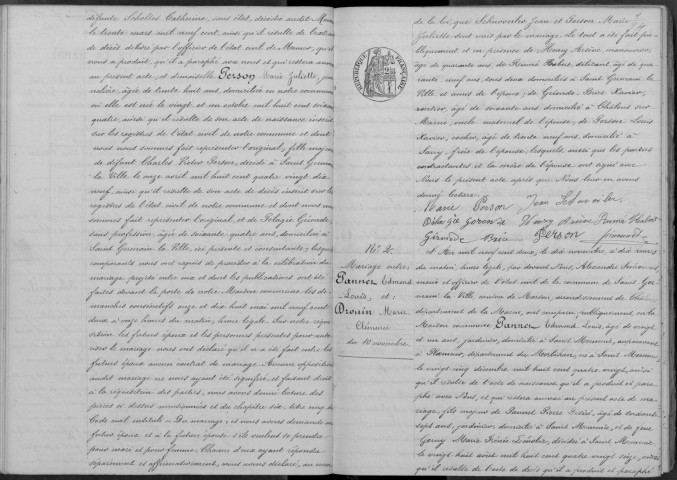 défunte Scholtes Catherine, sans état, décédée audit
le trente mars mil neuf cent, ainsi qu'il résulte de l'extrait
de décès délivré par l'officier de l'état civil de qu'il
nous a produit, qu'il a paraphé avec nous et qui restera annexé
au présent acte, et demoiselle Person Marie Juliette, jour
nalière, âgée de trente huit ans, domiciliée en notre commune
où elle est née le vingt et un octobre mil huit cent soixante
quatre, ainsi qu'il résulte de son acte de naissance inscrit
sur les registres de l'état civil de notre commune et dont
nous nous sommes fait représenter l'original, fille majeure
de défunt Charles Victor Person, décédé à Saint Germain
la Ville, le onze avril mil huit cent quatre vingt dix
neuf, ainsi qu'il résulte de son acte de décès inscrit sur les
registres de l'état civil de notre commune et dont nous nous
sommes fait représenter l'original, et de Pélagie Gérarde,
sans profession, âgée de soixante quatre ans, domiciliée à
Saint Germain la Ville, ici présente et consentante; lesquels
comparants nous ont requis de procéder à la célébration du
mariage projeté entre eux et dont les publications ont été
faites devant la porte de notre Maison commune les di-
manches consécutifs onze et dix huit mai mil neuf cent
deux à onze heures du matin, heure légale. Sur notre répui-
sition les futurs époux et les personnes présentes pour auto-
riser le mariage nous ont déclaré qu'il n'a été fait entre les
futurs époux aucun contrat de mariage. Aucune opposition
audit mariage ne nous ayant été signifiée, et faisant droit
à la réquisition des parties, nous avons donné lecture des
pièces ci dessus mentionnées et du chapitre six, titre cinq du
Code civil intitulé: Du mariage, et nous avons demandé au
futur époux et à la future épouse s'ils veulent se prendre
pour mari et pour femme. Chacun d'eux ayant répondu
séparément et affirmativement, nous avons déclaré, au nom
de la loi, que Schwoentler Jean et Person Marie
Juliette sont unis par le mariage. Le tout a été fait pu-
bliquement et en présence de Henry Arsène, manouvrier,
âgé de quarante ans, de Brumé Hubert, débitant, âgé de qua
rante neuf ans, tous deux domiciliés à Saint Germain la
Ville et amis de l'époux, de Gérarde Xavier,
rentier, âgé de soixante ans, domicilié à Châlons sur
Marne, oncle maternel de l'épouse, de Person Louis
Xavier, cocher, âgé de trente neuf ans, domicilié à
Sarry, frère de l'épouse, lesquels ainsi que les parties
contractantes et la mère de l'épouse ont signé avec
Nous le présent acte après que Nous leur en avons
donné lecture.
RÉPUBLIQUE FRANÇAISE
Marie Person Jean
Henry Arsène Brumé Hubert
Gérarde Person
N° 2.
Mariage entre
Pannet Edmond
Louis, et
Drouin Marie
Clémence
du 10 novembre
L'An mil neuf cent deux, le dix novembre, à dix heures
du matin, heure légale, par devant Nous, Alexandre
maire et officier de l'état civil de la commune de Saint Ger-
main la Ville, canton de Marson, arrondissement de Châlons
département de la Marne, ont comparu publiquement en la
Maison commune Pannet Edmond Louis, âgé de vingt
et un ans, jardinier, domicilié à Saint Memmie, auparavant
à département du Morbihan, né à Saint Memmie
le vingt cinq décembre mil huit cent quatre vingt, ainsi
qu'il résulte de l'acte de naissance qu'il a produit et para-
phé avec Nous, et qui restera annexé au présent acte de ma-
riage, fils majeur de Pannet Pierre Désiré, âgé de soixante
sept ans, jardinier, domicilié à Saint Memmie, et de feue
Marie décédée à Saint Memmie
le vingt huit août mil huit cent quatre vingt seize, ainsi
qu'il résulte de l'acte de décès qu'il a produit et paraphé